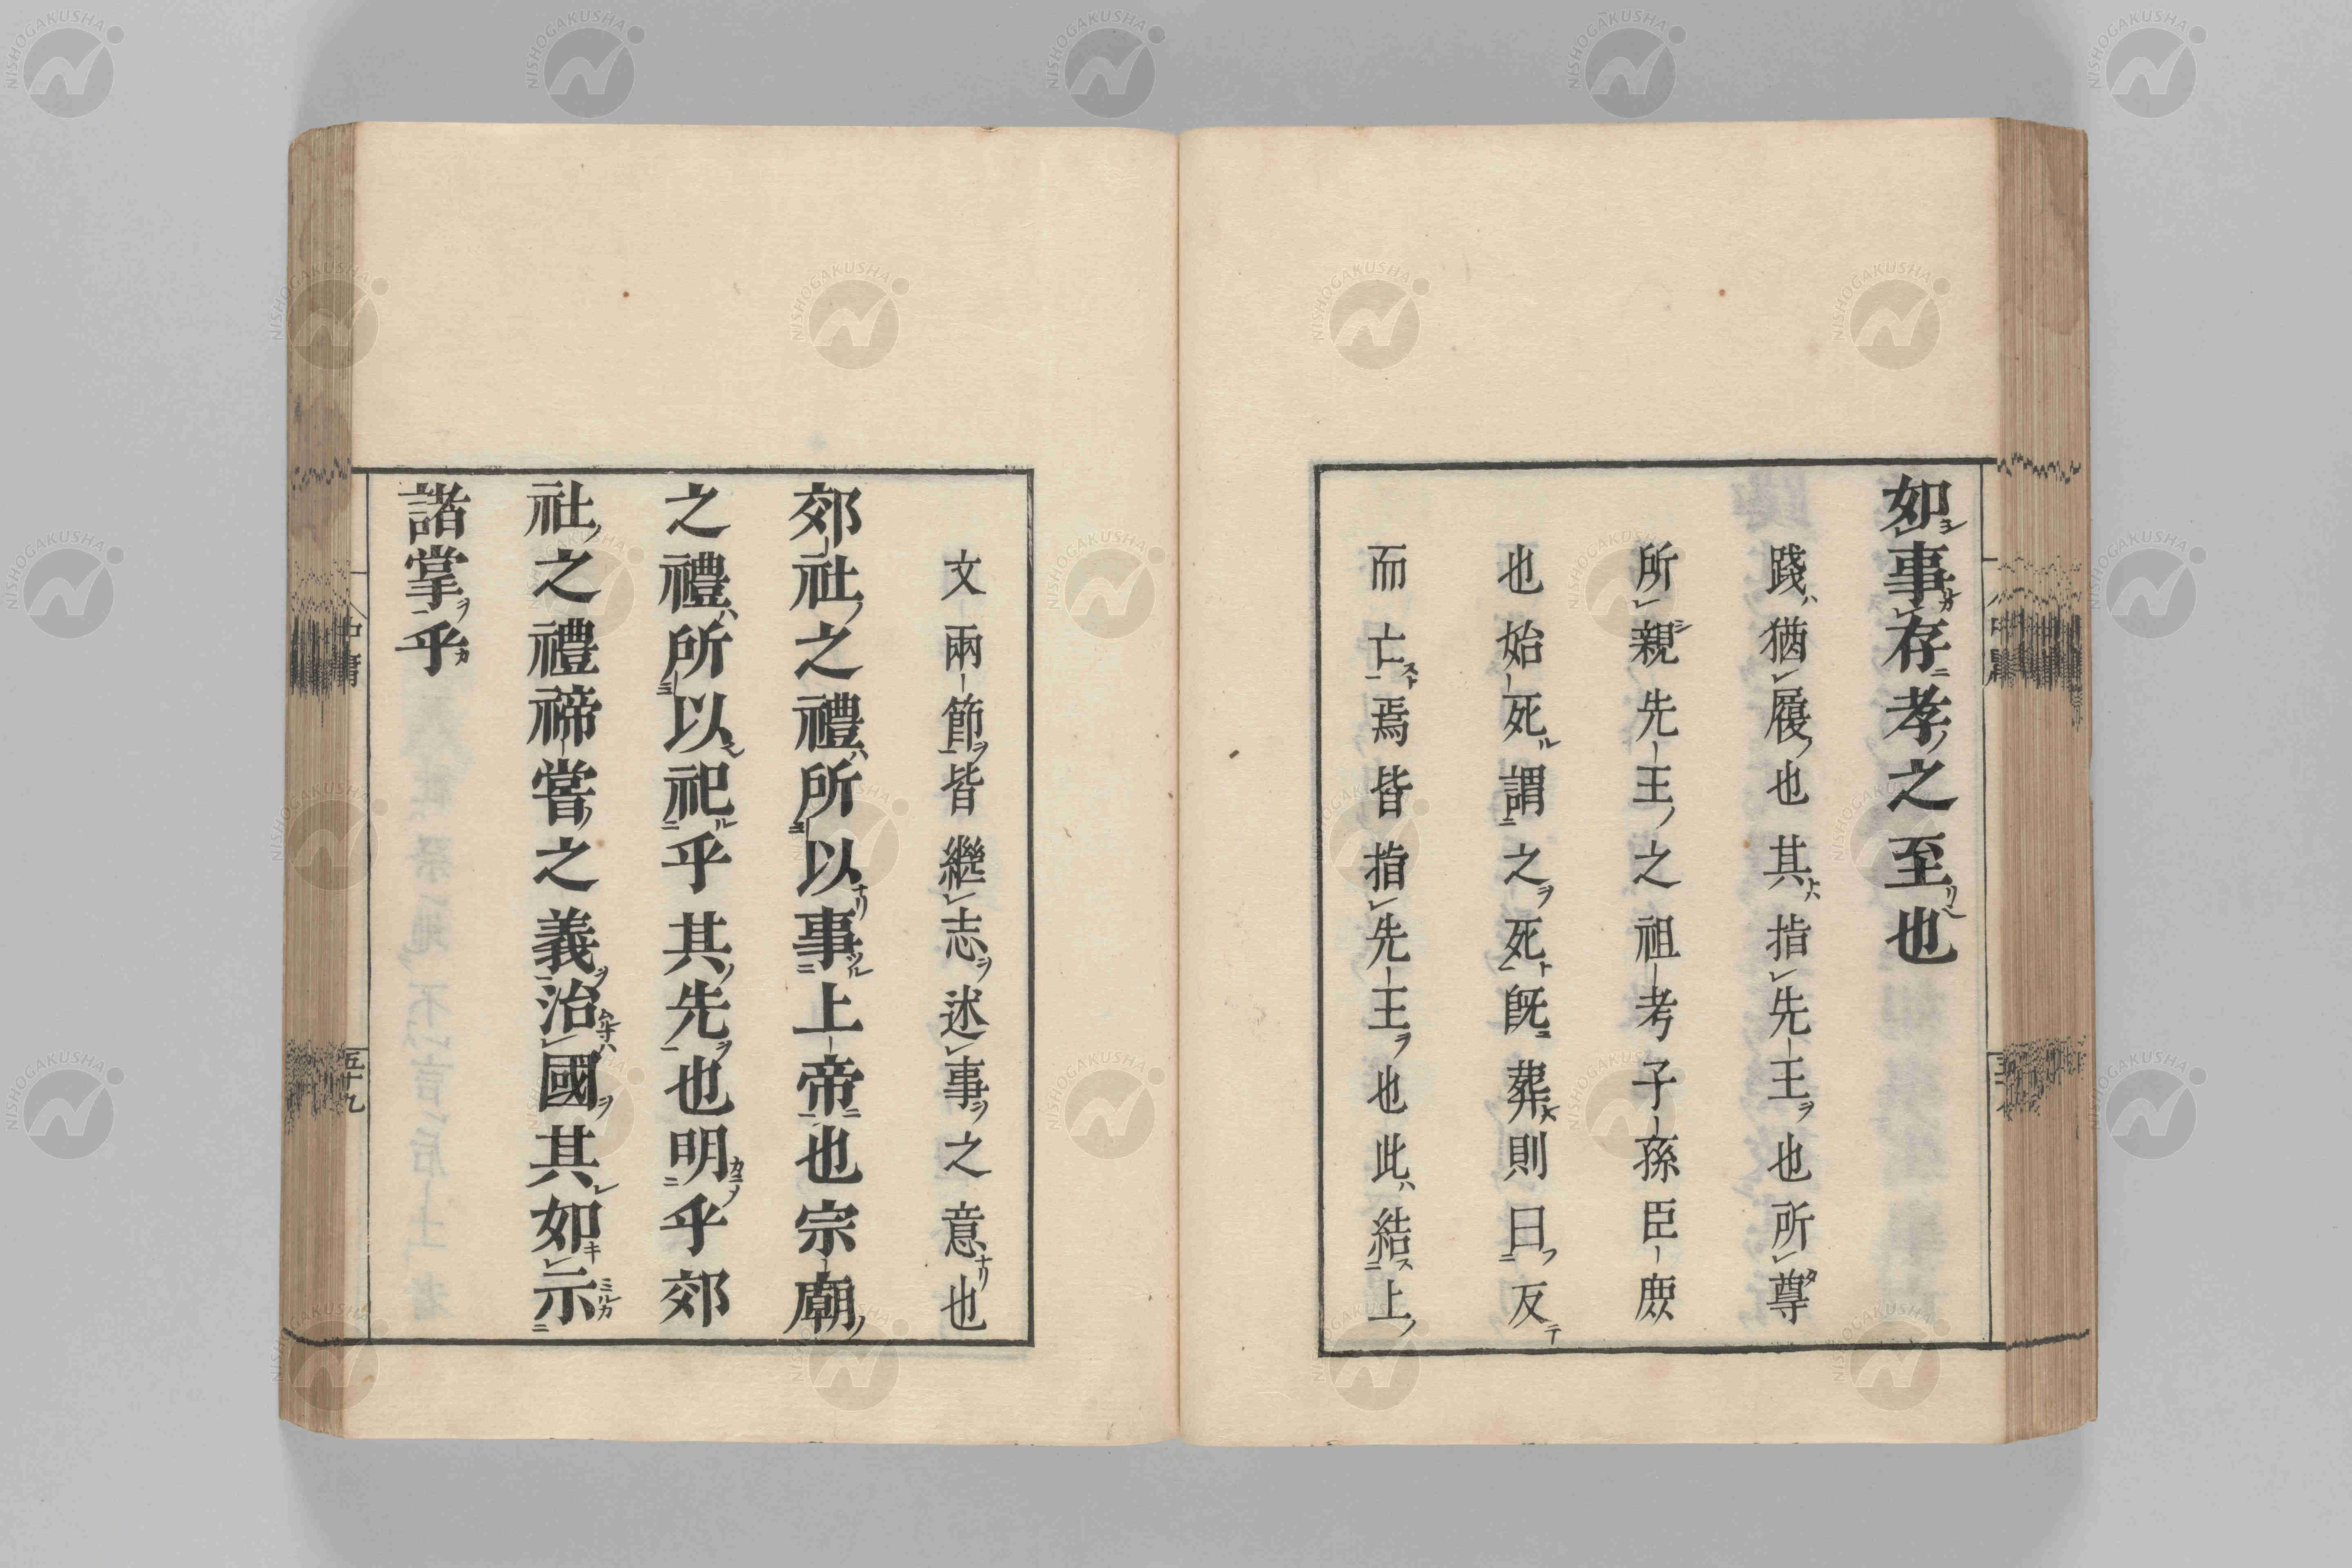 如事存孝之至也
踐猶履也其指先王也所尊
所親先王之祖考子孫臣庶
也始死謂之死既葬則曰反
而亡焉皆指先王也此結上
文兩節皆繼志述事之意也
郊社之禮所以事上帝也宗廟
之禮所以祀乎其先也明乎郊
社之禮禘嘗之義治國其如示
諸掌乎
中庸
五十九
NISHOGAKUSHA